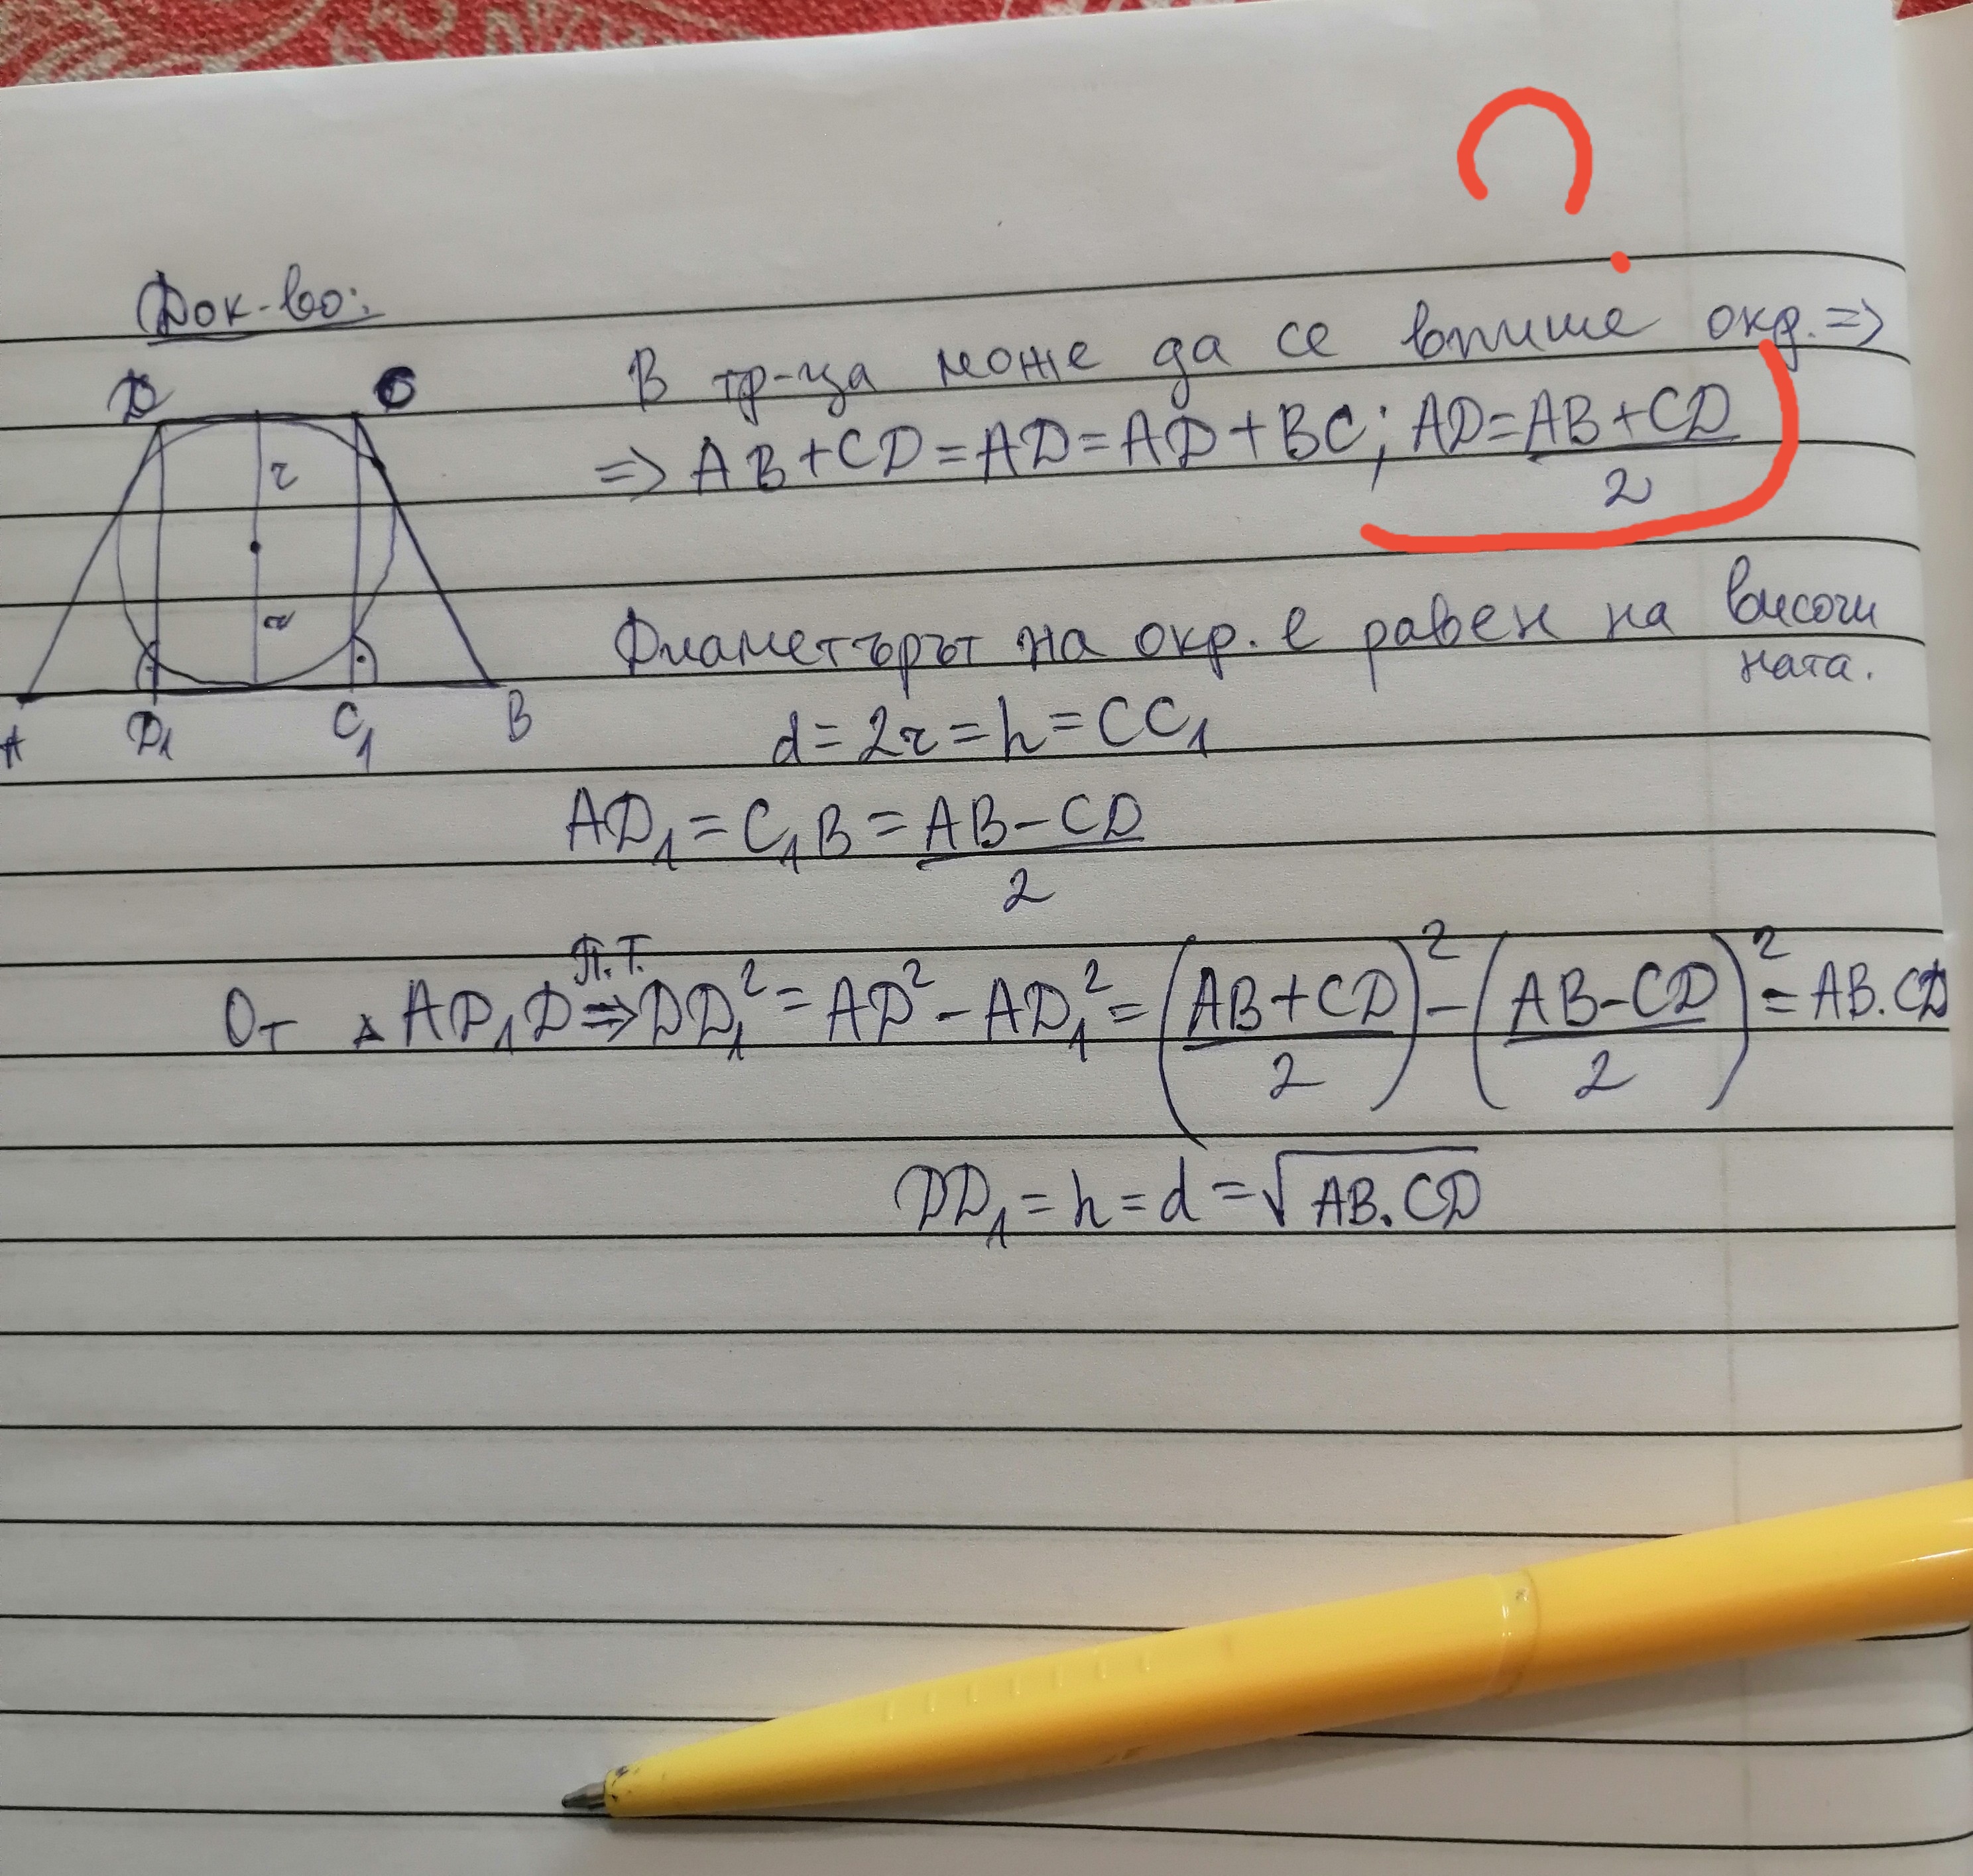 Док-во:
В тр-ца може да се впише окр. =>
=> AB+CD=AD=AD+BC; AD=AB+CD/2
D C
r
r
A D₁ C₁ B
Диаметърът на окр. е равен на височи
ната.
d=2r=h=CC₁
AD₁=C₁B=AB-CD/2
П.Т.
От △AD₁D => DD₁²=AD²-AD₁²=(AB+CD/2)²-(AB-CD/2)²=AB.CD
DD₁=h=d=√AB.CD